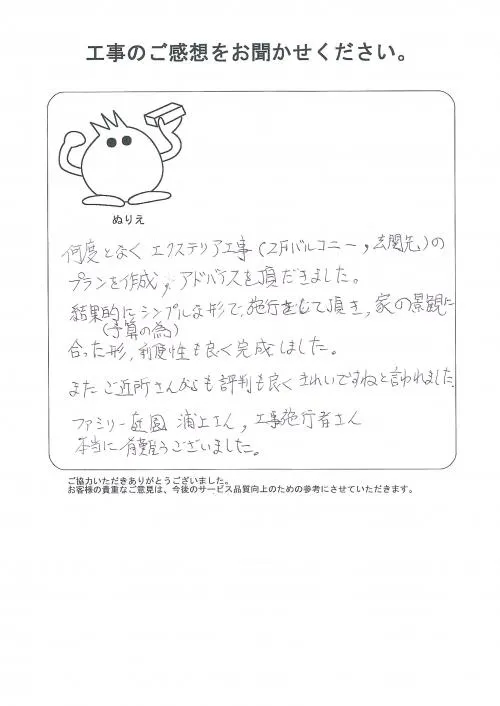 工事のご感想をお聞かせください。
ぬりえ
何度となくエクステリア工事(2Fバルコニー,玄関先)の
プランを作成,アドバイスを頂だきました。
結果的にシンプルな形で,施行をして頂き,家の景観に
(予算の為)
合った形,利便性も良く完成しました。
またご近所さんからも評判も良くきれいですねと言われました。
ファミリー庭園 浦上さん,工事施行者さん
本当に有難うございました。
ご協力いただきありがとうございました。
お客様の貴重なご意見は、今後のサービス品質向上のための参考にさせていただきます。